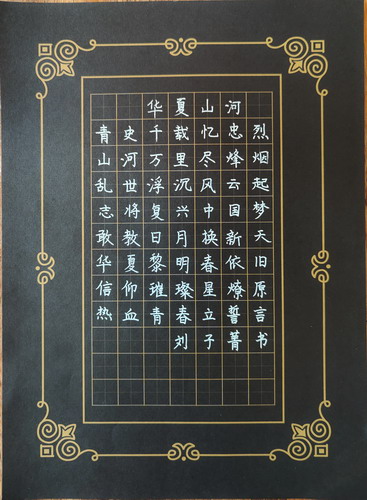 华夏山河
青史千载忆忠烈
山河万里尽烽烟
乱世浮沉风云起
志将复兴中国梦
敢教日月换新天
华夏黎明春依旧
信仰璀璨星燎原
热血青春立誓言
刘子菁书